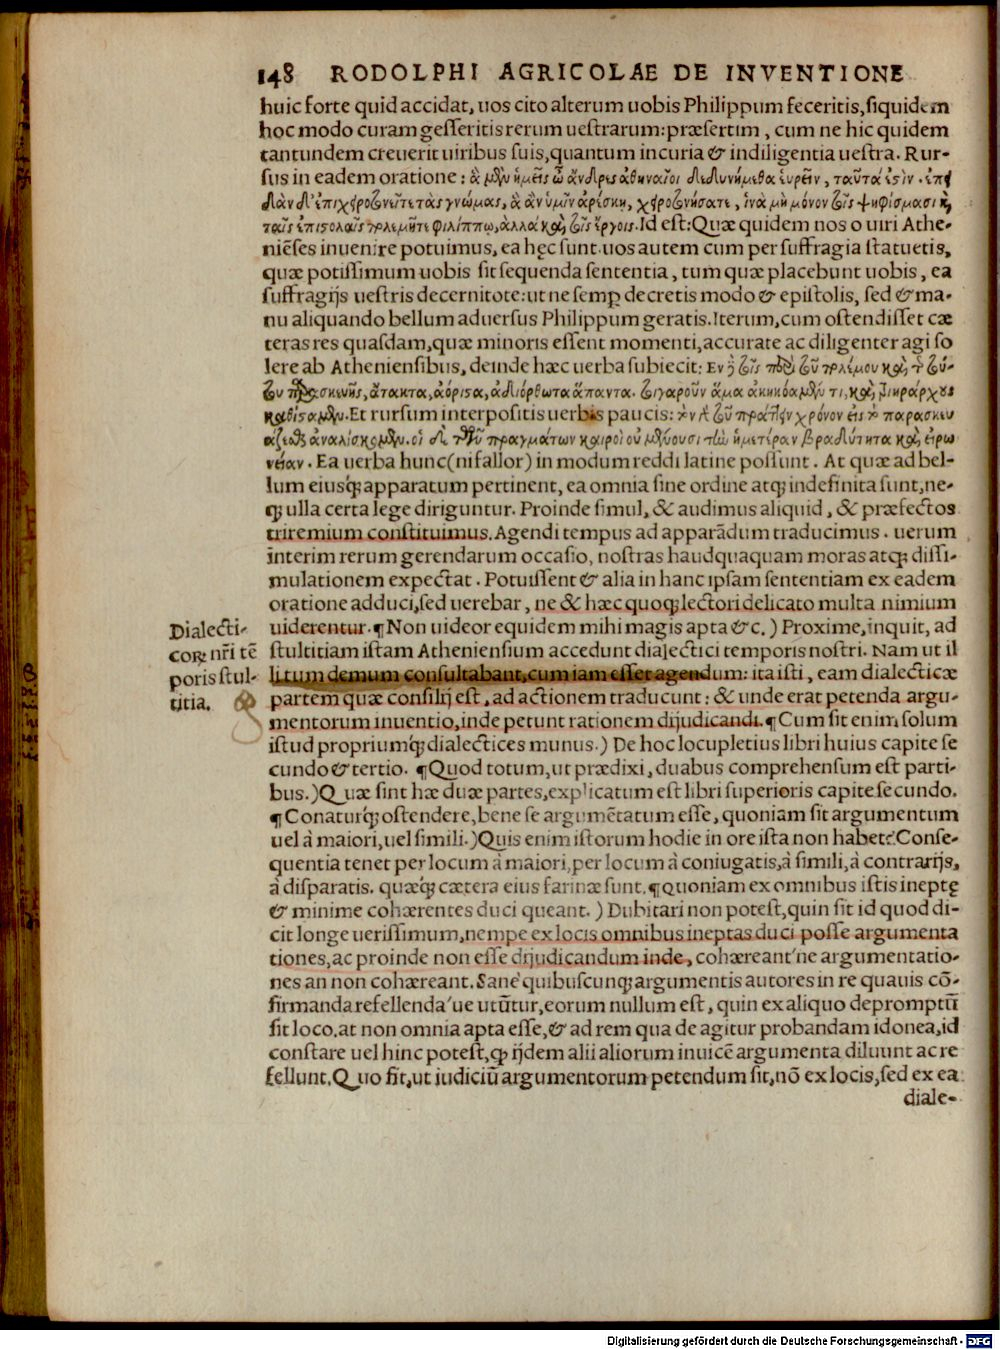 148 RODOLPHI AGRICOLAE DE INVENTIONE
huic forte quid accidat, uos cito alterum uobis Philippum feceritis, siquidem
hoc modo curam gesseritis rerum uestrarum: præsertim, cum ne hic quidem
tantundem creuerit uiribus suis, quantum incuria & indiligentia uestra. Rur-
sus in eadem oratione: ἃ μὲν ἡμεῖς ὦ ἄνδρες ἀθηναῖοι δεδυνήμεθα εὑρεῖν, ταῦτά ἐσιν. ἐπει
δὰν δ' ἐπιχειροτονεῖτε τὰς γνώμας, ἃ ἂν ὑμῖν ἀρέσκῃ, χειροτονήσατε, ἵνα μὴ μόνον τοῖς ψηφίσμασι κỳ
ταῖς ἐπιστολαῖς πολεμῆτε φιλίππῳ, ἀλλὰ καὶ τοῖς ἔργοις. Id est: Quæ quidem nos o uiri Athe-
niēses inuenire potuimus, ea hęc sunt. uos autem cum per suffragia statuetis,
quæ potissimum uobis sit sequenda sententia, tum quæ placebunt uobis, ea
suffragijs uestris decernitote: ut ne semꝑ decretis modo & epistolis, sed & ma-
nu aliquando bellum aduersus Philippum geratis. Iterum, cum ostendisset cæ
teras res quasdam, quæ minoris essent momenti, accurate ac diligenter agi so
lere ab Atheniensibus, deinde hæc uerba subiecit: Ἐν δὲ τοῖς περὶ τοῦ πολέμου καὶ τῇ τού-
του παρασκευῆς, ἄτακτα, ἀόριστα, ἀδιόρθωτα ἅπαντα. τοιγαροῦν ἅμα ἀκηκόαμέν τι, καὶ τριηράρχους
καθίσαμεν. Et rursum interpositis uerbis paucis: τὸν δὲ τοῦ πράττειν χρόνον εἰς τὸ παρασκευ
άζεσθαι ἀναλίσκομεν. οἱ δὲ τῶν πραγμάτων καιροὶ οὐ μένουσι τὴν ἡμετέραν βραδύτητα καὶ εἰρω
νείαν. Ea uerba hunc (ni fallor) in modum reddi latine possunt. At quæ ad bel-
lum eiusq; apparatum pertinent, ea omnia sine ordine atq; indefinita sunt, ne-
q; ulla certa lege diriguntur. Proinde simul, & audimus aliquid, & præfectos
triremium constituimus. Agendi tempus ad apparādum traducimus. uerum
interim rerum gerendarum occasio, nostras haudquaquam moras atq; dissi-
mulationem expectat. Potuissent & alia in hanc ipsam sententiam ex eadem
oratione adduci, sed uerebar, ne & hæc quoq; lectori delicato multa nimium
uiderentur. ¶ Non uideor equidem mihi magis apta &c.) Proxime, inquit, ad
stultitiam istam Atheniensium accedunt dialectici temporis nostri. Nam ut il
li tum demum consultabant, cum iam esset agendum: ita isti, eam dialecticæ
partem quæ consilij est, ad actionem traducunt: & unde erat petenda argu-
mentorum inuentio, inde petunt rationem dijudicandi. ¶ Cum sit enim solum
istud propriumq; dialectices munus.) De hoc locupletius libri huius capite se
cundo & tertio. ¶ Quod totum, ut prædixi, duabus comprehensum est parti-
bus.) Quæ sint hæ duæ partes, explicatum est libri superioris capite secundo.
¶ Conaturq; ostendere, bene se argumētatum esse, quoniam sit argumentum
uel à maiori, uel simili.) Quis enim istorum hodie in ore ista non habet? Conse-
quentia tenet per locum à maiori, per locum à coniugatis, à simili, à contrarijs,
à disparatis. quæq; cætera eius farinæ sunt. ¶ Quoniam ex omnibus istis ineptę
& minime cohærentes duci queant.) Dubitari non potest, quin sit id quod di-
cit longe uerissimum, nempe ex locis omnibus ineptas duci posse argumenta
tiones, ac proinde non esse dijudicandum inde, cohæreant'ne argumentatio-
nes an non cohæreant. Sane quibuscunq; argumentis autores in re quauis cō-
firmanda refellenda'ue utūtur, eorum nullum est, quin ex aliquo depromptū
sit loco. at non omnia apta esse, & ad rem qua de agitur probandam idonea, id
constare uel hinc potest, ꝙ ijdem alii aliorum inuicē argumenta diluunt ac re
fellunt. Quo fit, ut iudiciū argumentorum petendum sit, nō ex locis, sed ex ea
diale-
Dialecti-
corꝝ nr̄i tē
poris stul-
titia.
Digitalisierung gefördert durch die Deutsche Forschungsgemeinschaft - DFG